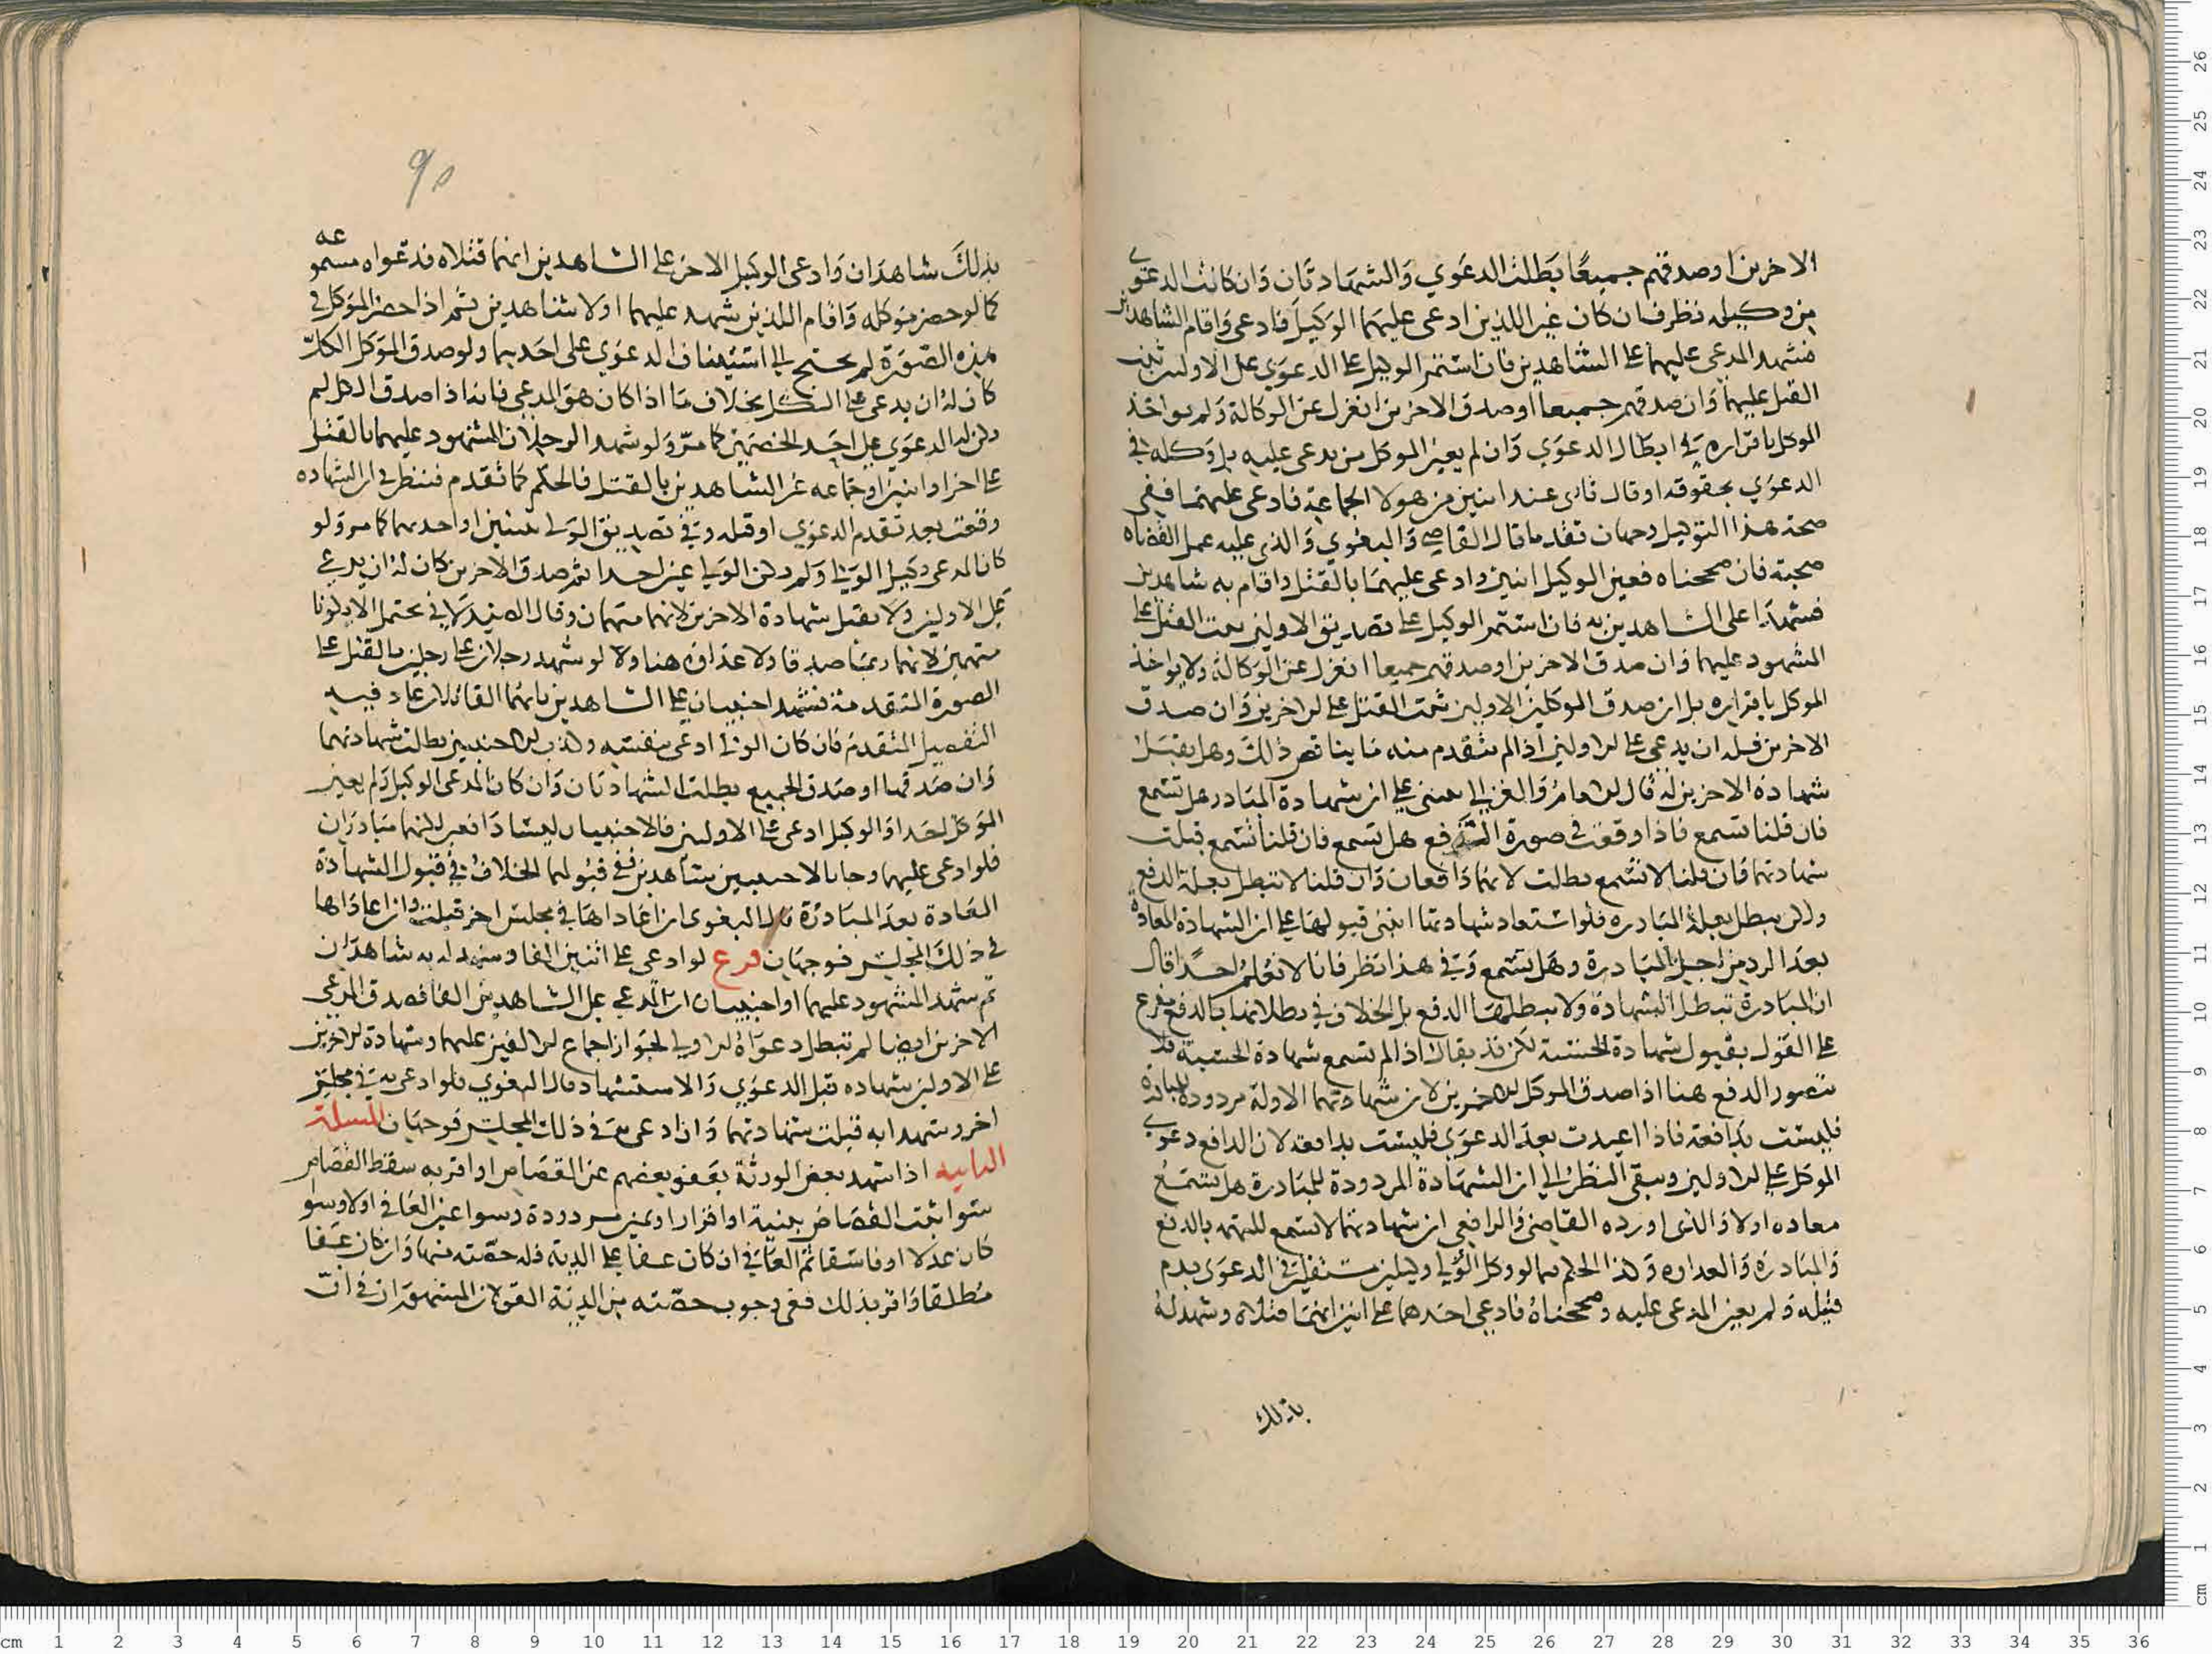 الاخرين او صدقهم جميعًا بطلت الدعوي والشهادتان وان كانت الدعوي
من وكيله نظر فان كان عين اللذين ادعى عليهما الوكيل فادعى واقام الشاهدين
فشهد المدعى عليهما على الشاهدين فان استمر الوكيل على الدعوي على الاولين ثبت
القتل عليهما وان صدقهم جميعا او صدق الاخرين انعزل عن الوكالة ولم يواخذ
الموكل باقراره في ابطال الدعوي وان لم يعين الموكل من يدعى عليه بل وكله في
الدعوي بحقوقه او قال ثارى عند اثنين من هولا الجماعة فادعى عليهما ففي
صحة هذا التوكيل وجهان تقدما قال القاضي والبغوي والذي عليه عمل القضاه
صحته فان صححناه فعين الوكيل اثنين وادعى عليهما بالقتل واقام به شاهدين
فشهدا على الشاهدين به فان استمر الوكيل على تصديق الاولين ثبت القتل على
المشهود عليهما وان صدق الاخرين او صدقهم جميعا انعزل عن الوكالة ولا يواخذ
الموكل باقراره بل ان صدق الموكل الاولين ثبت القتل على الاخرين وان صدق
الاخرين فله ان يدعى على الاولين اذا لم يتقدم منه ما يناقض ذلك وهل يقبل
شهادة الاخرين له قال الامام والغزالي يبنى على ان شهادة المبادر هل تسمع
فان قلنا تسمع فاذا وقعت في صورة الدفع هل تسمع فان قلنا تسمع قبلت
شهادتهما وان قلنا لا تسمع بطلت لانهما دافعان وان قلنا لا تبطل بعلة الدفع
ولكن تبطل بعلة المبادره فلو استعاد شهادتهما انبنى قبولها على ان الشهادة المعادة
بعد الرد من اجل المبادرة وهل تسمع وفي هذا نظر فانا لا نعلم احدًا قال
ان المبادرة تبطل الشهادة ولا يبطلها الدفع بل الخلاف في بطلانها بالدفع مفرع
على القول بقبول شهادة الحسبة لكن قد يقال اذا لم تسمع شهادة الحسبة فلا
يتصور الدفع هنا اذا صدق الموكل الاخرين لان شهادتهما الاولة مردودة للمبادرة
فليست بدافعة فاذا اعيدت بعد الدعوي فليست بدافعة لان الدافع دعوي
الموكل على الاولين وسبق النظر الي ان الشهادة المردودة للمبادرة هل تسمع
معاده اولا والذي اورده القاضي والرافعي ان شهادتهما لا تسمع للتهمة بالدفع
والمبادرة والعداوه وكذا الحكم فيما لو وكل الولي وكيلين مستقلين في الدعوى بدم
قتيله ولم يعين المدعى عليه وصححناه فادعى احدهما على اثنين انهما قتلاه وشهد له
بذلك
٩٥
بذلك شاهدان وادعى الوكيل الاخر على الشاهدين انهما قتلاه فدعواه مسموعه
كما لو حضر موكله واقام اللذين شهد عليهما اولا شاهدين ثم اذا حضر الموكل في
هذه الصورة لم يحتج الي استيناف الدعوى على احديهما ولو صدق الموكل الكل
كان له ان يدعى على الكل بخلاف ما اذا كان هو المدعي فانه اذا صدق الكل لم
يكن له الدعوى على احد الخصمين كما مر ولو شهد الرجلان المشهود عليهما بالقتل
على اخر او اثنين او جماعه غير الشاهدين بالقتل فالحكم كما تقدم فننظر في ان الشهاده
وقعت بعد تقدم الدعوي او قبله وفي تصديق الولي للبينتين او احدهما كما مر ولو
كان المدعى وكيل الولي ولم يكن الولي عين احدا ثم صدق الاخرين كان له ان يدعي
على الاولين ولا يقبل شهادة الاخرين لانهما متهمان وقال الصيدلاني يحتمل الا يكونا
متهمين لانهما ربما صدقا ولا عداوة هنا ولا لو شهد رجلان على رجلين بالقتل على
الصورة المتقدمة فشهد اجنبيان على الشاهدين بانهما القاتلان عاد فيه
التفصيل المتقدم فان كان الولي ادعى بنفسه وكذب الاجنبيين بطلت شهادتهما
وان صدقهما او صدق الجميع بطلت الشهادتان وان كان المدعى الوكيل ولم يعين
الموكل احدا والوكيل ادعى على الاولين فالاجنبيان ليسا دافعين لكنهما مبادران
فلو ادعى عليهما وجاا بالاجنبيين شاهدين ففي قبولهما الخلاف في قبول الشهادة
المعادة بعد المبادرة قال البغوى ان اعاداها في مجلس اخر قبلت وان اعاداها
في ذلك المجلس فوجهان فرع لو ادعى على اثنين الفا وشهد له به شاهدان
ثم شهد المشهود عليهما او اجنبيان ان للمدعي على الشاهدين الفا فصدق المدعي
الاخرين ايضا لم تبطل دعواه الاولي لجواز اجتماع الالفين عليهما وشهادة الاخرين
على الاولين شهاده قبل الدعوي والاستشهاد قال البغوي فلو ادعى به في مجلس
اخر وشهدا به قبلت شهادتهما وان ادعى به في ذلك المجلس فوجهان المسلة
الثانيه اذا شهد بعض الورثة بعفو بعضهم عن القصاص او اقر به سقط القصاص
سوا ثبت القصاص ببينة او اقرار او يمين مردودة وسوا عين العافي اولا وسوا
كان عدلا او فاسقا ثم العافي ان كان عفا على الدية فله حصته منها وان كان عفا
مطلقا واقر بذلك ففي وجوب حصته من الدية القولان المشهوران في ان